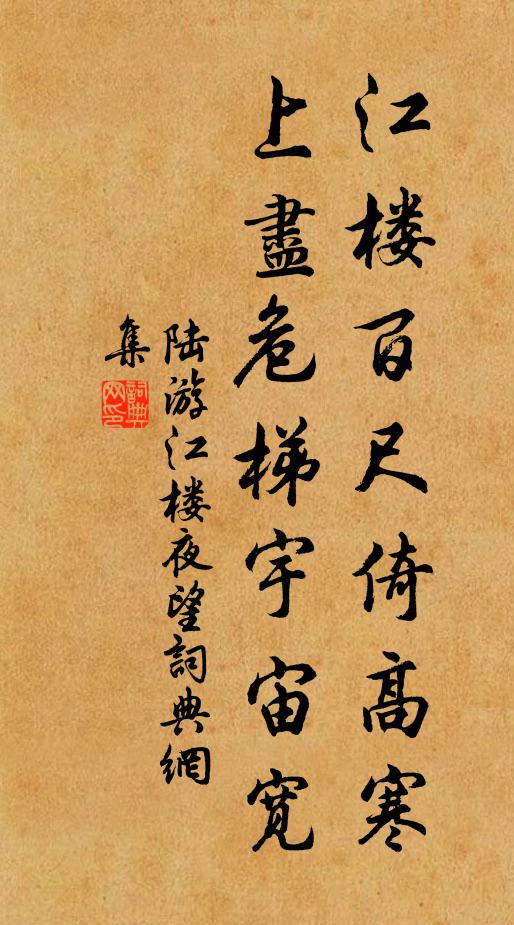 江楼百尺倚高寒
上盡危梯宇宙宽
陆游江楼夜望詞典網
集
詞典
网印